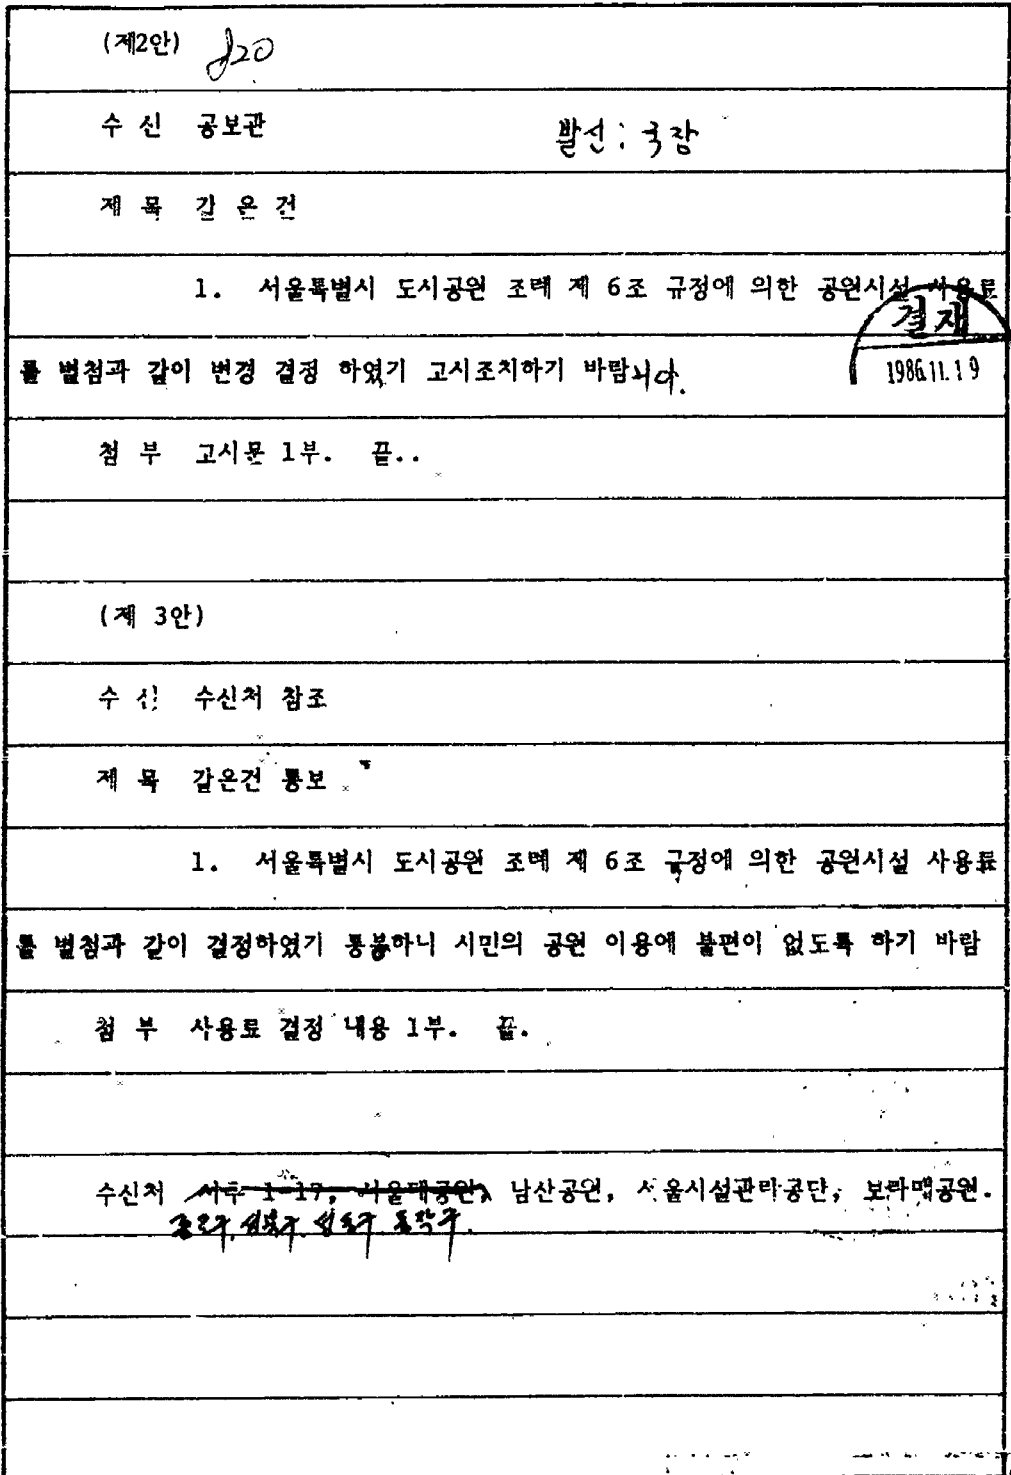 (제2안) 820
수 신 공보관 발신: 국장
제 목 같 은 건
1. 서울특별시 도시공원 조례 제 6조 규정에 의한 공원시설 사용료
결재
를 별첨과 같이 변경 결정 하였기 고시조치하기 바랍니다.
1986.11.19
첨 부 고시문 1부. 끝..
(제 3안)
수 신 수신처 참조
제 목 같은건 통보
1. 서울특별시 도시공원 조례 제 6조 규정에 의한 공원시설 사용료
를 별첨과 같이 결정하였기 통봉하니 시민의 공원 이용에 불편이 없도록 하기 바람
첨 부 사용료 결정 내용 1부. 끝.
수신처 서후 1-17, 서울대공원, 남산공원, 서울시설관리공단, 보라매공원.
종로구, 성북구, 성동구, 동작구.